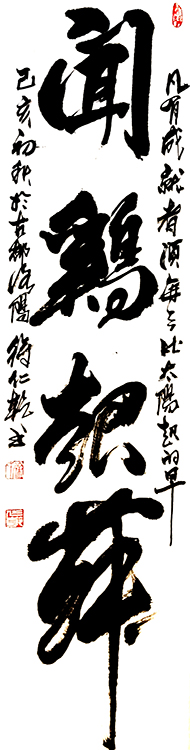 聞鷄起舞
凡有成就者須每天比太陽起的早
己亥初秋於古都洛陽